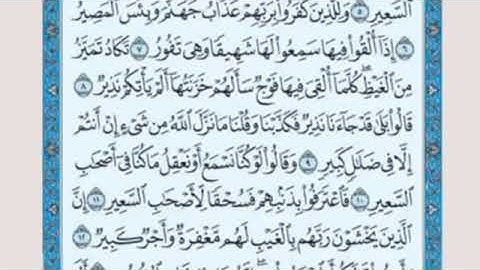 ٱلسَّعِيرِ ۝٥ وَلِلَّذِينَ كَفَرُوا۟ بِرَبِّهِمْ عَذَابُ جَهَنَّمَ وَبِئْسَ ٱلْمَصِيرُ
۝٦ إِذَآ أُلْقُوا۟ فِيهَا سَمِعُوا۟ لَهَا شَهِيقًا وَهِىَ تَفُورُ ۝٧ تَكَادُ تَمَيَّزُ
مِنَ ٱلْغَيْظِ ۖ كُلَّمَآ أُلْقِىَ فِيهَا فَوْجٌ سَأَلَهُمْ خَزَنَتُهَآ أَلَمْ يَأْتِكُمْ نَذِيرٌ ۝٨
قَالُوا۟ بَلَىٰ قَدْ جَآءَنَا نَذِيرٌ فَكَذَّبْنَا وَقُلْنَا مَا نَزَّلَ ٱللَّهُ مِن شَىْءٍ إِنْ أَنتُمْ
إِلَّا فِى ضَلَٰلٍ كَبِيرٍ ۝٩ وَقَالُوا۟ لَوْ كُنَّا نَسْمَعُ أَوْ نَعْقِلُ مَا كُنَّا فِىٓ أَصْحَٰبِ
ٱلسَّعِيرِ ۝١٠ فَٱعْتَرَفُوا۟ بِذَنۢبِهِمْ فَسُحْقًا لِّأَصْحَٰبِ ٱلسَّعِيرِ ۝١١ إِنَّ
ٱلَّذِينَ يَخْشَوْنَ رَبَّهُم بِٱلْغَيْبِ لَهُم مَّغْفِرَةٌ وَأَجْرٌ كَبِيرٌ ۝١٢